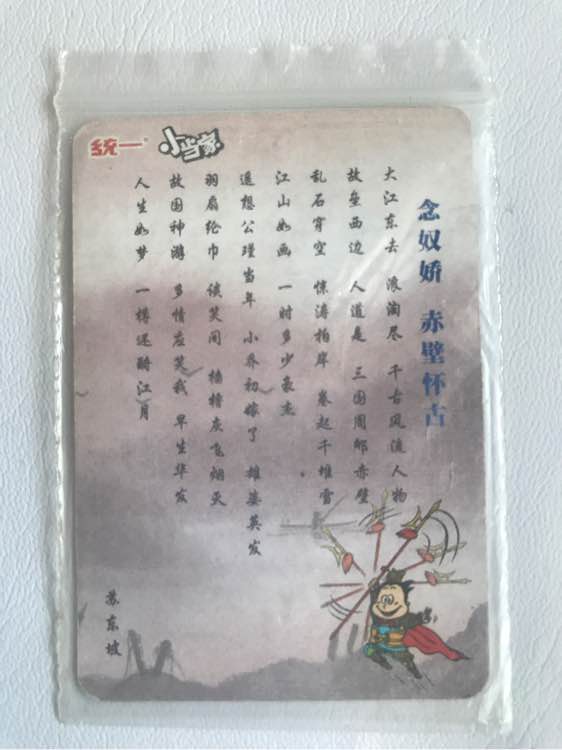 统一 小当家
念奴娇 赤壁怀古
大江东去 浪淘尽 千古风流人物
故垒西边 人道是 三国周郎赤壁
乱石穿空 惊涛拍岸 卷起千堆雪
江山如画 一时多少豪杰
遥想公瑾当年 小乔初嫁了 雄姿英发
羽扇纶巾 谈笑间 樯橹灰飞烟灭
故国神游 多情应笑我 早生华发
人生如梦 一樽还酹江月
苏东坡